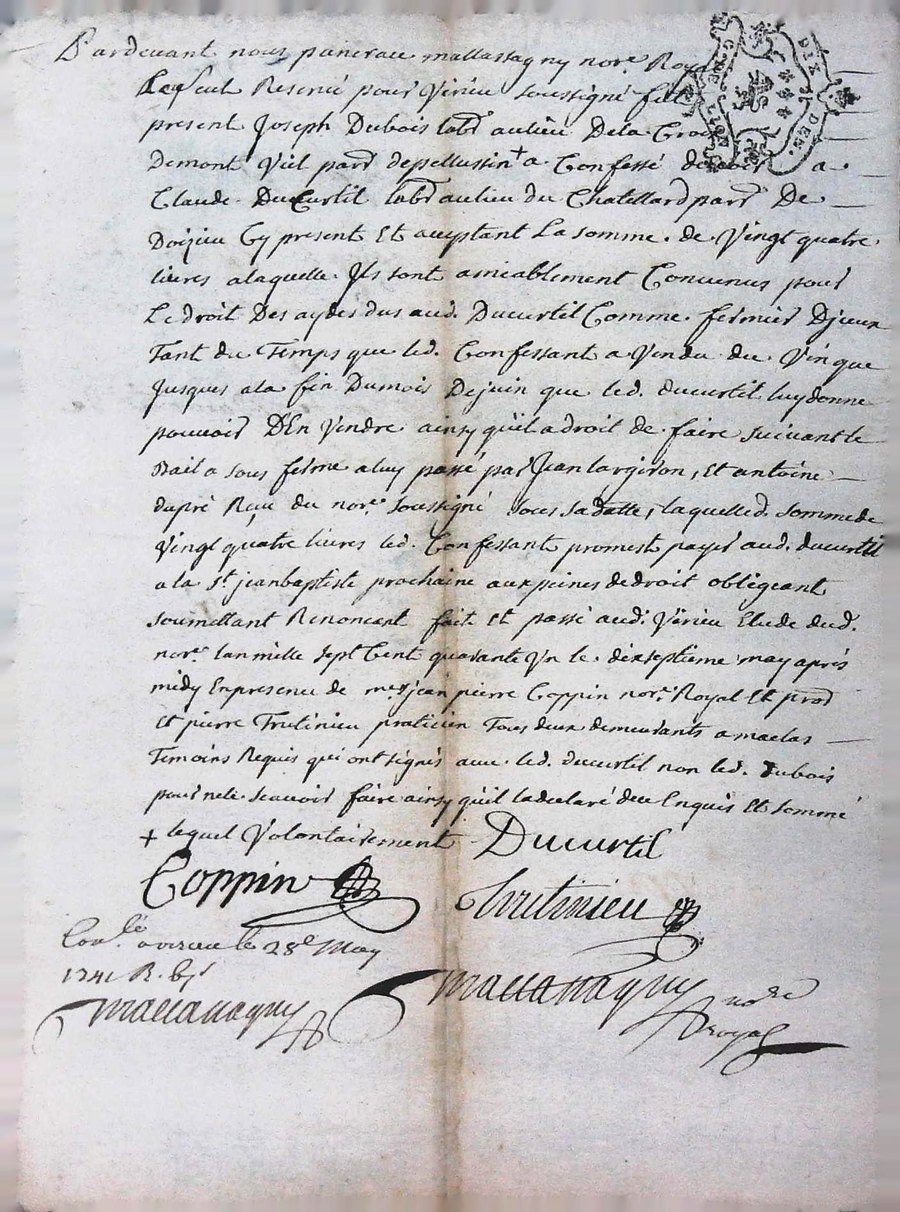 Pardevant nous pancrace mallassagny nore. Royal
le seul Reservé pour Virieu soussigné fut
present Joseph Dubois labr. au lieu De la Croix
Demont Viel parr. depellussin + a Confessé devoir a
Claude Ducurtil labr. au lieu du Chatellard parr. De
Doizieu Cy present Et aceptant La somme de Vingt quatre
livres a laquelle Ils sont amiablement Convenus pour
Le droit Des aydes dus aud. Ducurtil Comme fermier D'jceux
Tant du Temps que led. Confessant a Vendu du Vin que
Jusques a la fin Dumois Dejuin que led. ducurtil luy donne
pouvoir D'En Vendre ainsy qu'il a droit de faire suivant le
Bail a sous ferme a luy passé par Jean largeron, Et antoine
dupré Reçu du nore. soussigné sous sa datte, laquelled. somme de
Vingt quatre livres led. Confessant promest payer aud. ducurtil
a la St. jeanbaptiste prochaine aux peines de droit obligeant
soumettant Renoncant fait Et passé aud. Virieu Etude dud.
nore. lan mille sept Cent quarante Un le dixseptieme may aprés
midy En presence de me. jean pierre Coppin nore. Royal Et procr.
Et pierre Trutinieu praticien Tous deux demeurants a maclas
Temoins Requis qui ont signés avec led. ducurtil non led. dubois
pour ne le scavoir faire ainsy qu'il la declaré deu Enquis Et sommé
+ lequel Volontairement Ducurtil
Coppin Trutinieu
Conlé. a virieu le 28e May
1741 R. 6s
Mallassagny Mallassagny nore
royal